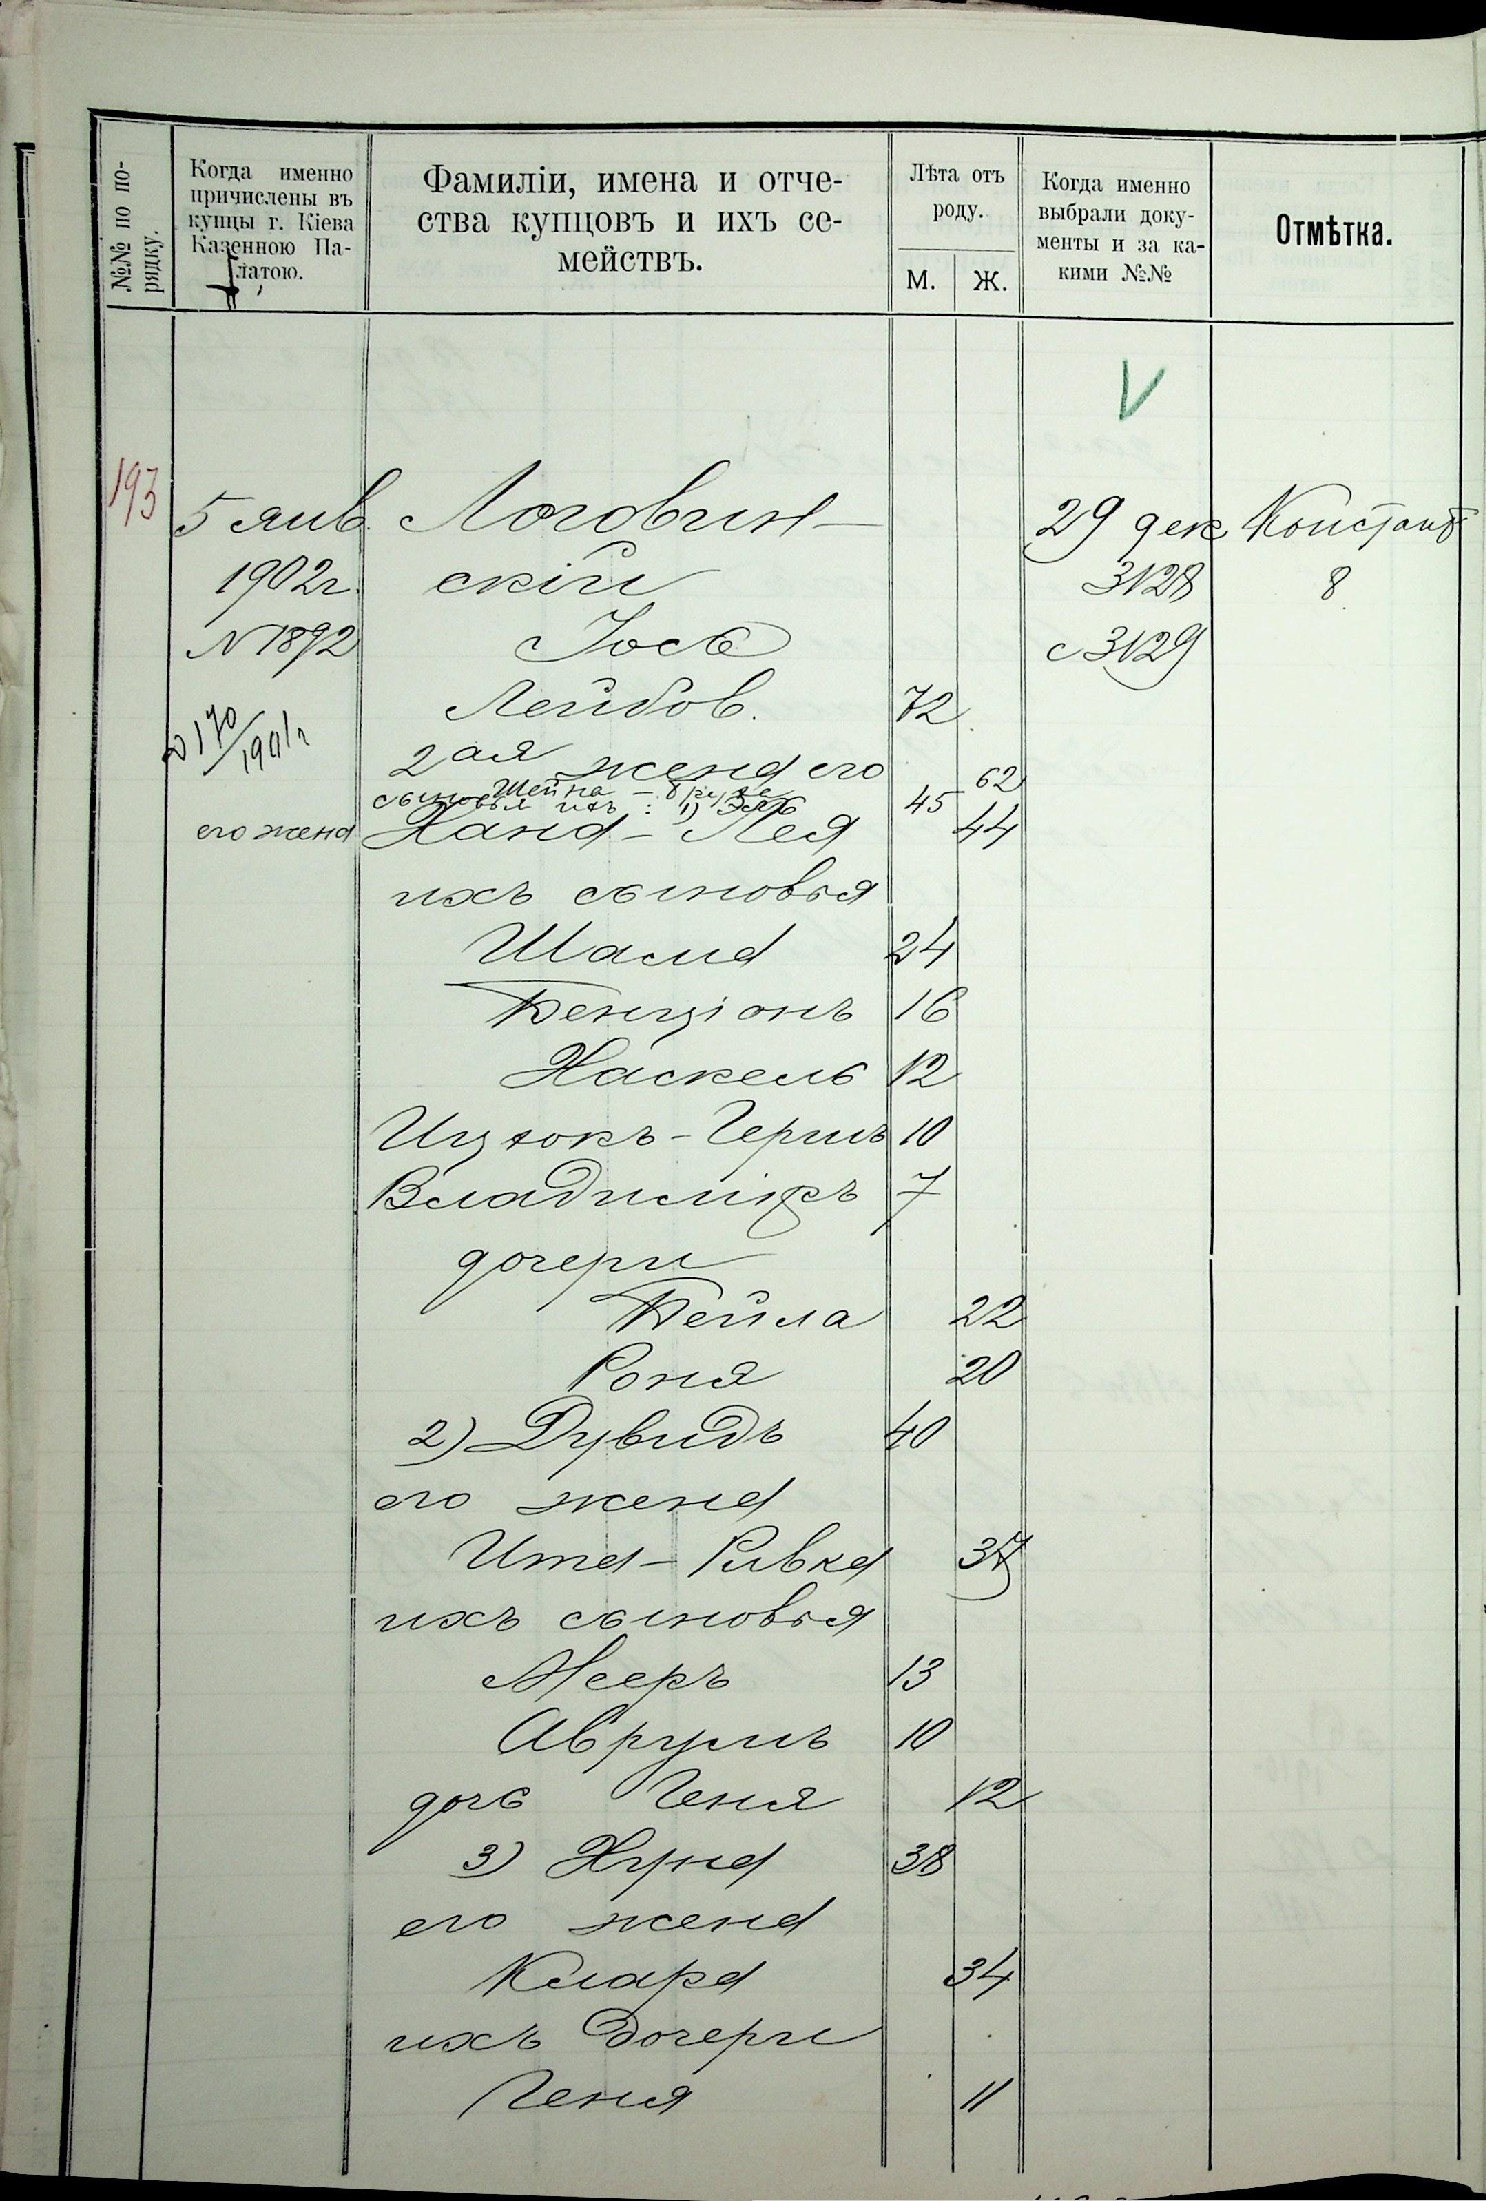 №№ по по-
рядку.
Когда именно
причислены въ
купцы г. Кіева
Казенною Па-
латою.
Фамиліи, имена и отче-
ства купцовъ и ихъ се-
мействъ.
Лѣта отъ
роду.
М. Ж.
Когда именно
выбрали доку-
менты и за ка-
кими №№
Отмѣтка.
193
5 янв. Логовин- 29 дек Констант
1902г. скій 3128 8
№ 1892 Іось с 3129
Лейбов. 72
№ 170/1901г
2ая жена его
Шейна - 62
сыновья ихъ: 1) Эль 45
его жена Хана-Лея 44
ихъ сыновья
Шама 24
Бенціонъ 16
Хаскель 12
Ицхокъ-Гершъ 10
Владиміръ 7
дочери
Бейла 22
Роня 20
2) Дувидъ 40
его жена
Ита-Ривка 37
ихъ сыновья
Мееръ 13
Аврумъ 10
дочь Геня 12
3) Хуна 38
его жена
Клара 34
ихъ дочери
Геня 11